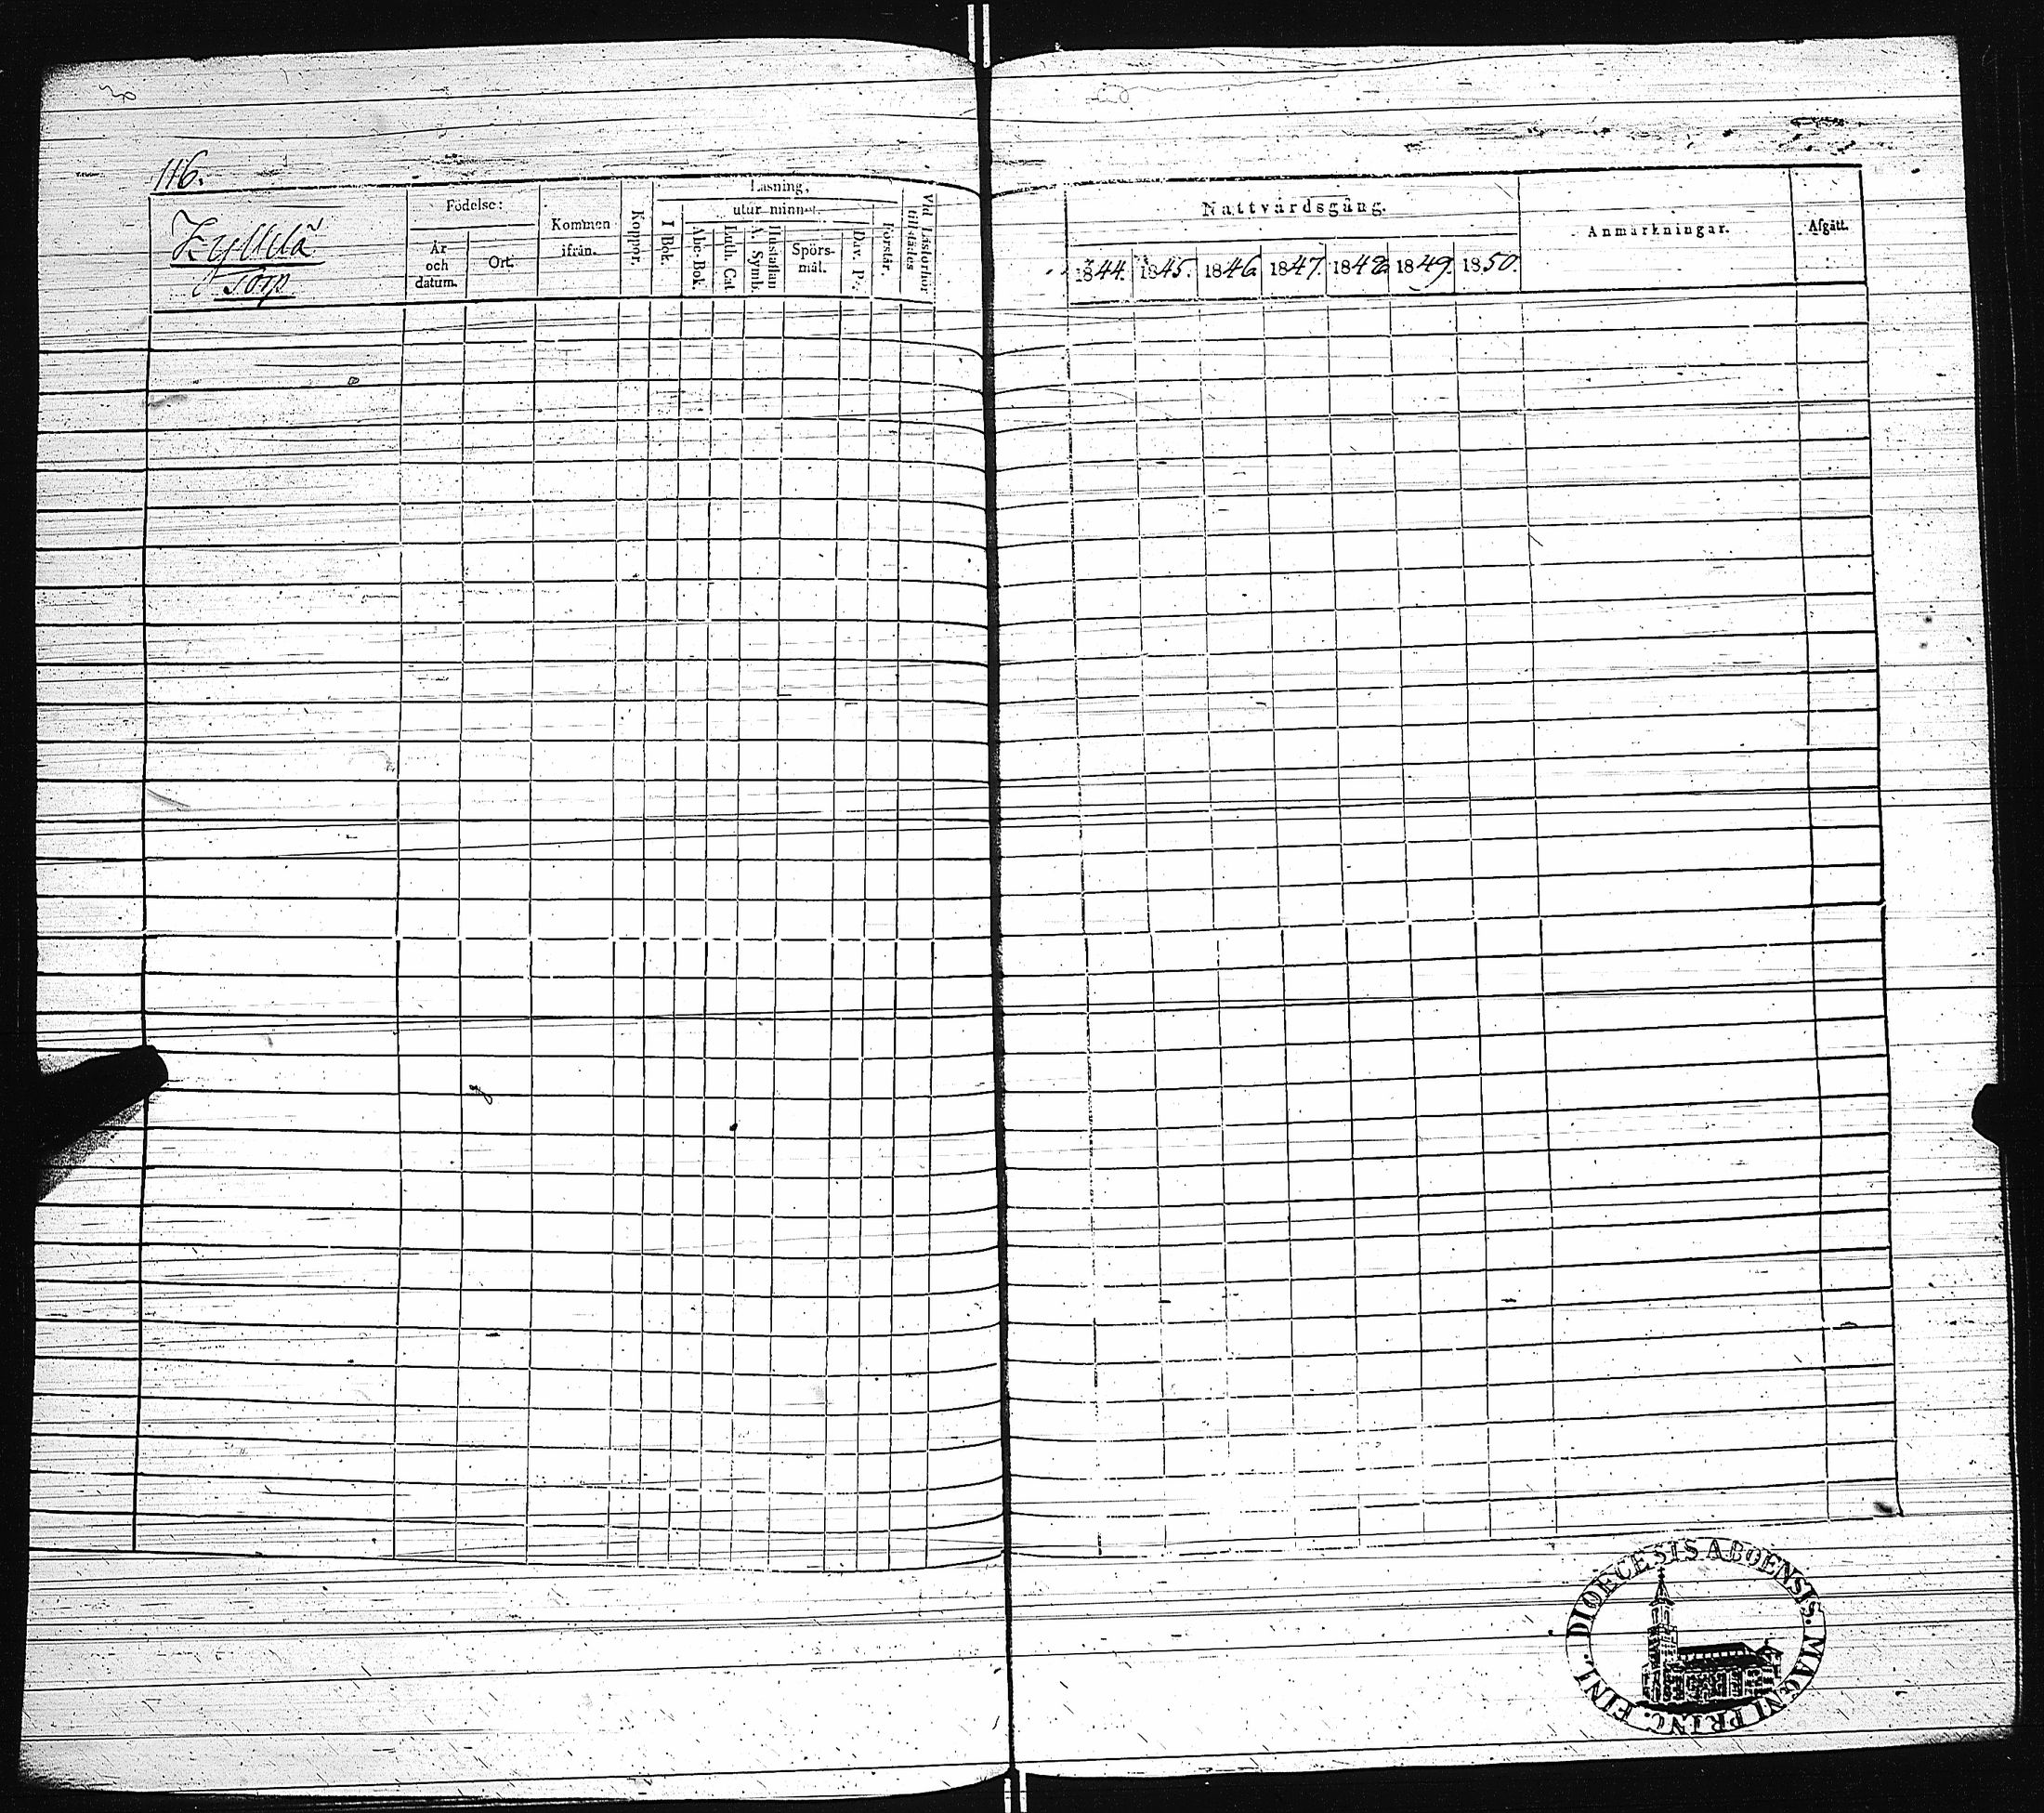 116.
Kyllilä
Torp
Födelse:
År och datum.
Ort.
Kommen ifrån.
Koppor.
Läsning,
utur minnet.
I Bok.
Abc-Bok.
Luth. Cat.
Hustaflan A. Symb.
Spörs-
mål.
Dav. Ps.
Förstår.
Vid Läsförhör
tillstädes
Nattvardsgång.
1844. 1845. 1846. 1847. 1848. 1849. 1850.
Anmärkningar.
Afgått.
DIOECESIS ABOENSIS. MAGNI PRINC. FINL.